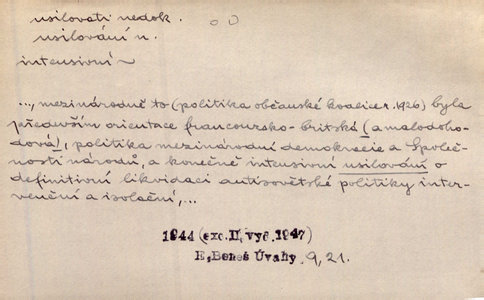 usilovati nedok.
usilování n.
intensivní ~
..., mezinárodně to (politika občanské koalice r. 1926) byla
především orientace francouzsko-britská (a malodoho-
dová), politika mezinárodní demokracie a Společ-
nosti národů, a konečně intensivní usilování o
definitivní likvidaci autisovětské politiky inter-
venční a isolační, ...
1944 (exc. II, vyd. 1947)
E, Beneš Úvahy 9, 21.